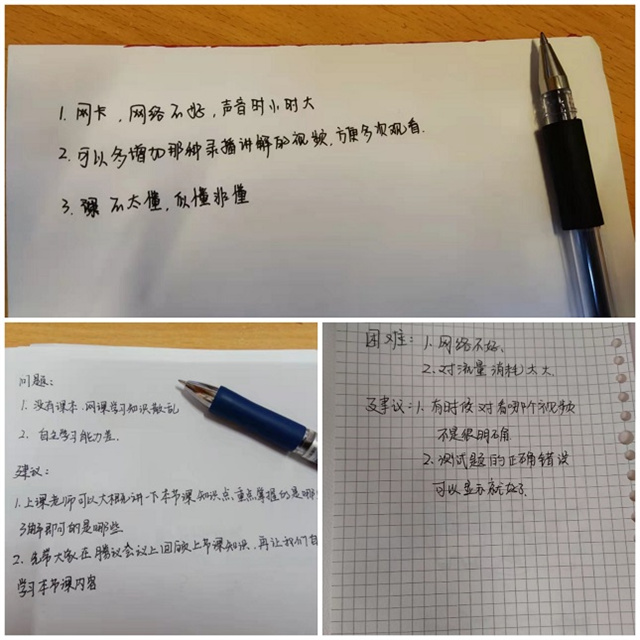 1. 网卡，网络不好，声音时小时大
2. 可以多增加那种录播讲解的视频，方便多次观看.
3. 不太懂，似懂非懂
问题：
1. 没有课本，网课学习知识散乱
2. 自主学习能力差.
建议：
1. 上课老师可以大概讲一下本节课知识点，重点掌握的是哪
了解即可的是哪些
2. 先带大家在腾议会议上回顾上节课知识，再让我们自
学习本节课内容
困难：1. 网络不好、
2. 对流量消耗太大.
建议：1. 有时候对看哪个视频
不是很明确
2. 测试题的正确错误
可以显示就好了.